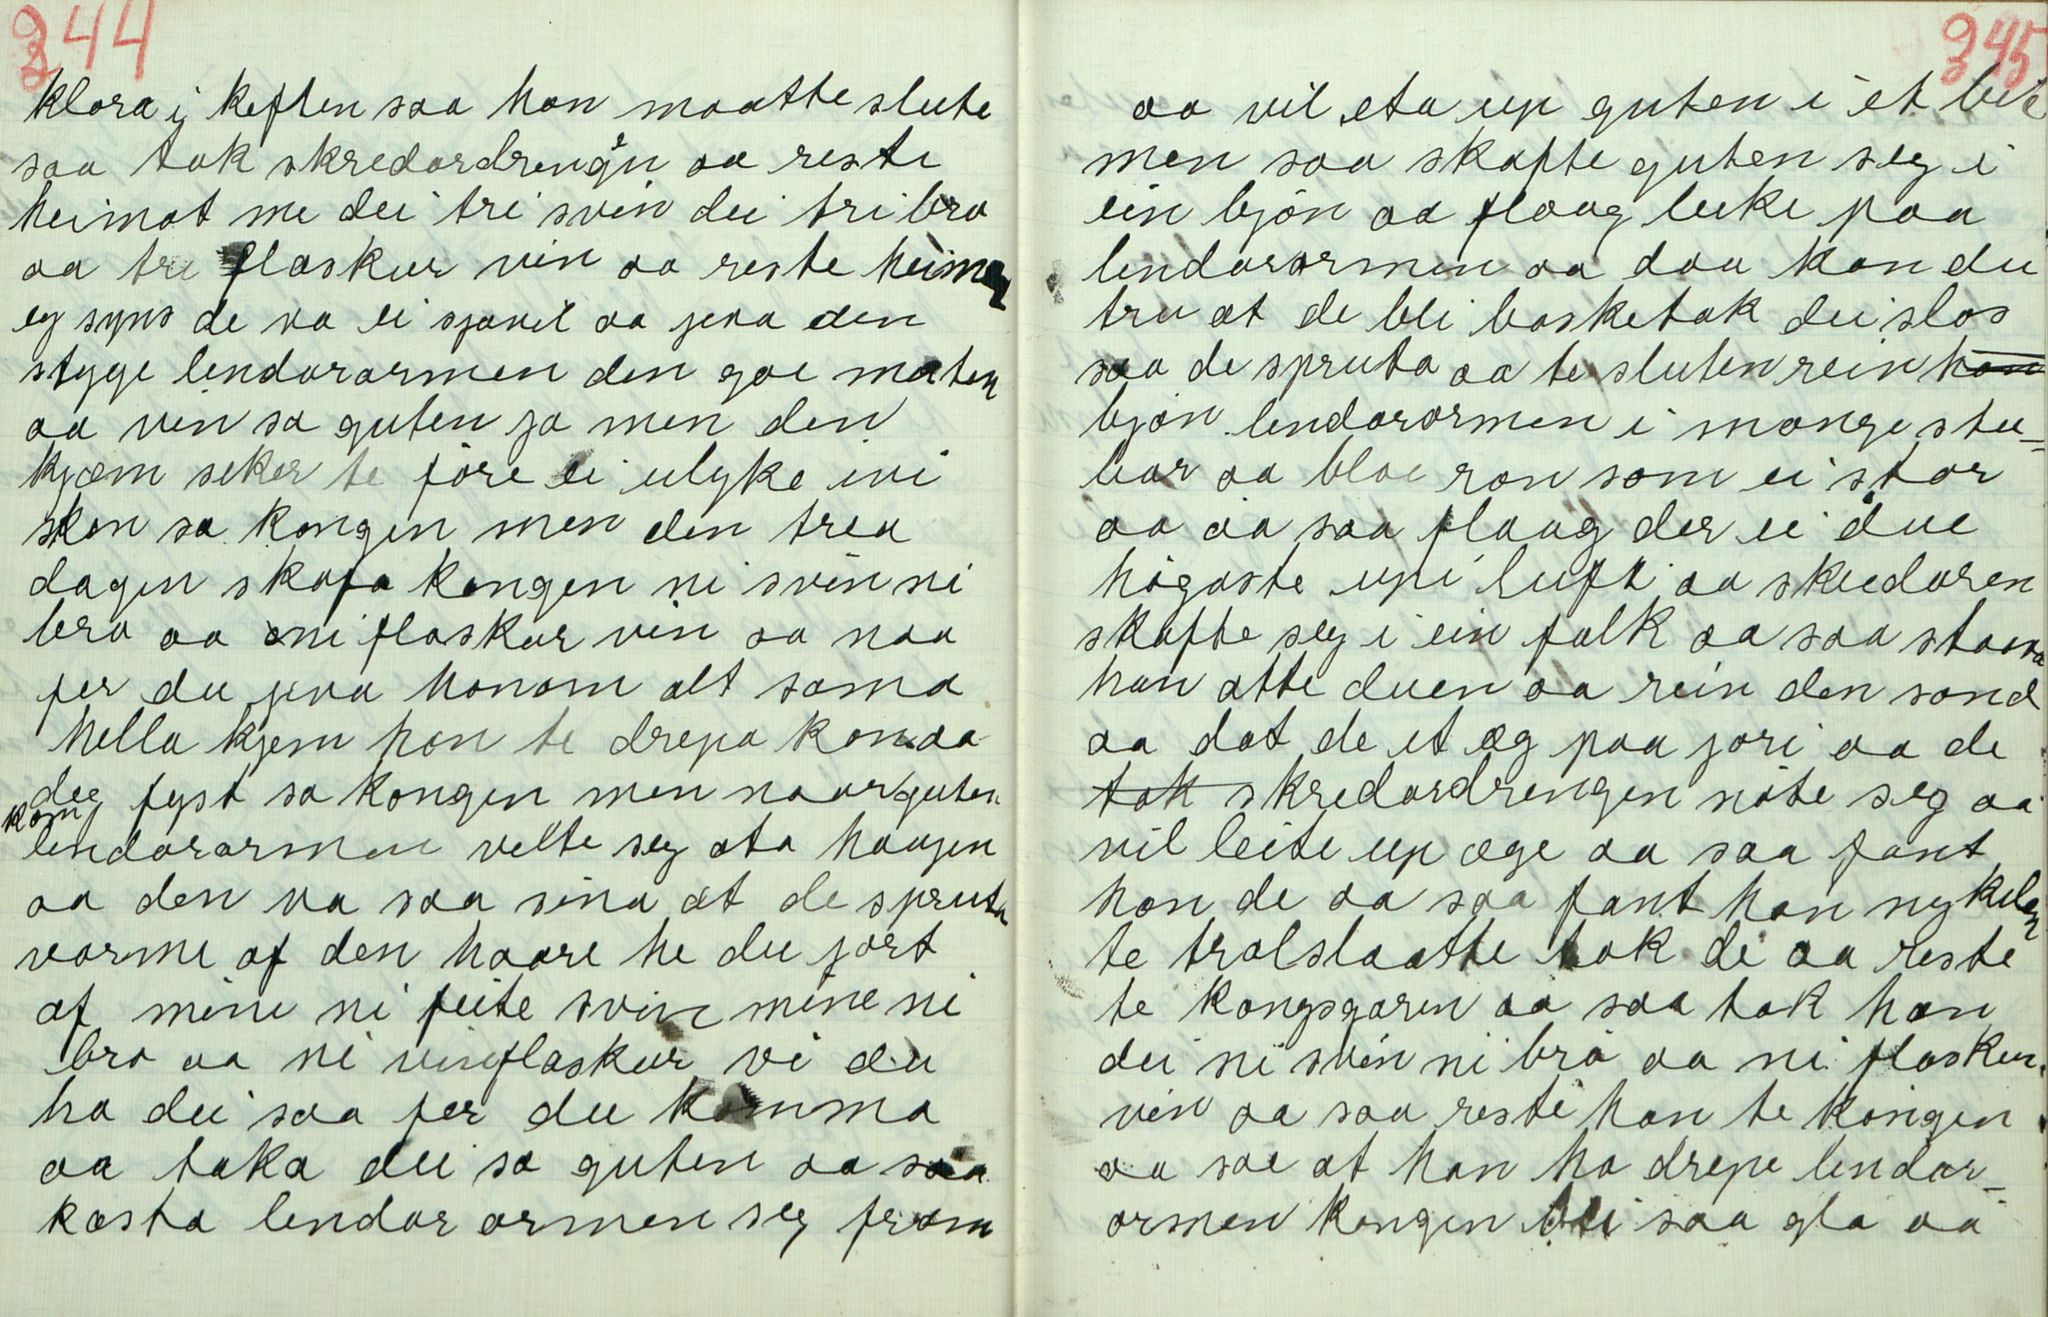 244
klora i keften saa han maatte slute
saa tok skredardrengin aa reste
heimot me dei tri svin dei tri brø
aa tri flaskur vin aa reste heim
eg syns de va ei sjavil aa jeva den
stygge lendarormen den goe maten
aa vin sa guten ja men den
kjæm seker te føre ei ulyke ivi
sken sa kongen men den trea
dagen skafa kongen ni svin ni
brø aa ni flaskur vin sa naa
fer du jeva honom alt sama
hella kjem han te drepa kona aa
deg fyst sa kongen men naar guten
kom
lendarormen velte seg ata haugen
aa den va saa sina at de spruta
varme af den haare he du jort
af mine ni feite svin mine ni
brø aa ni vinflaskur vi du
ha dei saa fer du komma
aa taka dei sa guten aa saa
kasta lendar ormen seg fram
345
aa vil eta up guten i et bit
men saa skafte guten seg i
ein bjøn aa flaug beike paa
lendarormen aa daa kan du
tru at de bli basketak dei slos
saa de spruta aa te sluten rein han
bjøn lendarormen i mange stu-
bar aa bloe ran som ei stor
aa aa saa flaug der ei due
høgaste upi luft aa skredaren
skafte seg i ein falk aa saa stoava
han atte duen aa rein den sond
aa dat de et æg paa jori aa de
tok skredardrengen nøte seg aa
vil leite up æge aa saa fant
han de aa saa fant han nykelen
te trolslaatte tok de aa reste
te kongsgaren aa saa tok han
dei ni svin ni brø aa ni flaskur
vin aa saa reste han te kongen
aa sae at han ha drepe lendar-
ormen kongen blei saa gla aa